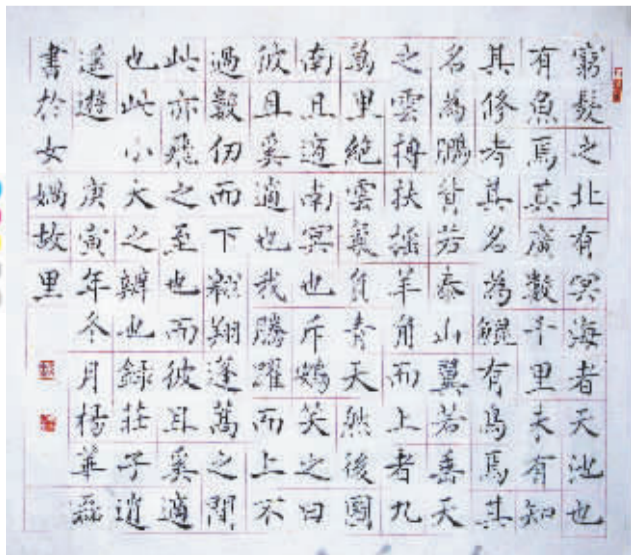 窮髮之北有冥海者天池也
有魚焉其廣數千里未有知
其修者其名為鯤有鳥焉其
名為鵬背若泰山翼若垂天
之雲搏扶搖羊角而上者九
萬里絕雲氣負青天然後圖
南且適南冥也斥鴳笑之曰
彼且奚適也我騰躍而上不
過數仞而下翱翔蓬蒿之間
此亦飛之至也而彼且奚適
也此小大之辯也録莊子逍
遙遊 庚寅年冬月楊華磊
書於女媧故里